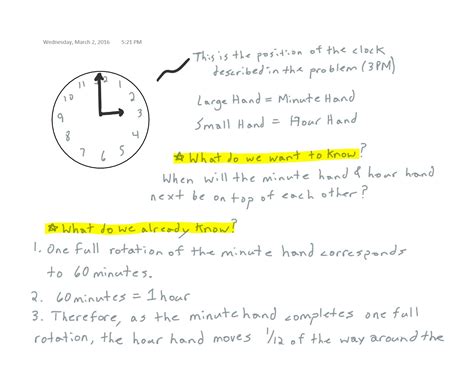 Wednesday, March 2, 2016 5:21 PM
This is the position of the clock
described in the problem (3PM)
Large Hand = Minute Hand
Small Hand = Hour Hand
11 12 1
10 2
9 3
8 4
7 6 5
☆ What do we want to know?
When will the minute hand & hour hand
next be on top of each other?
☆ What do we already know?
1. One full rotation of the minute hand corresponds
to 60 minutes.
2. 60 minutes = 1 hour
3. Therefore, as the minute hand completes one full
rotation, the hour hand moves 1/12 of the way around the